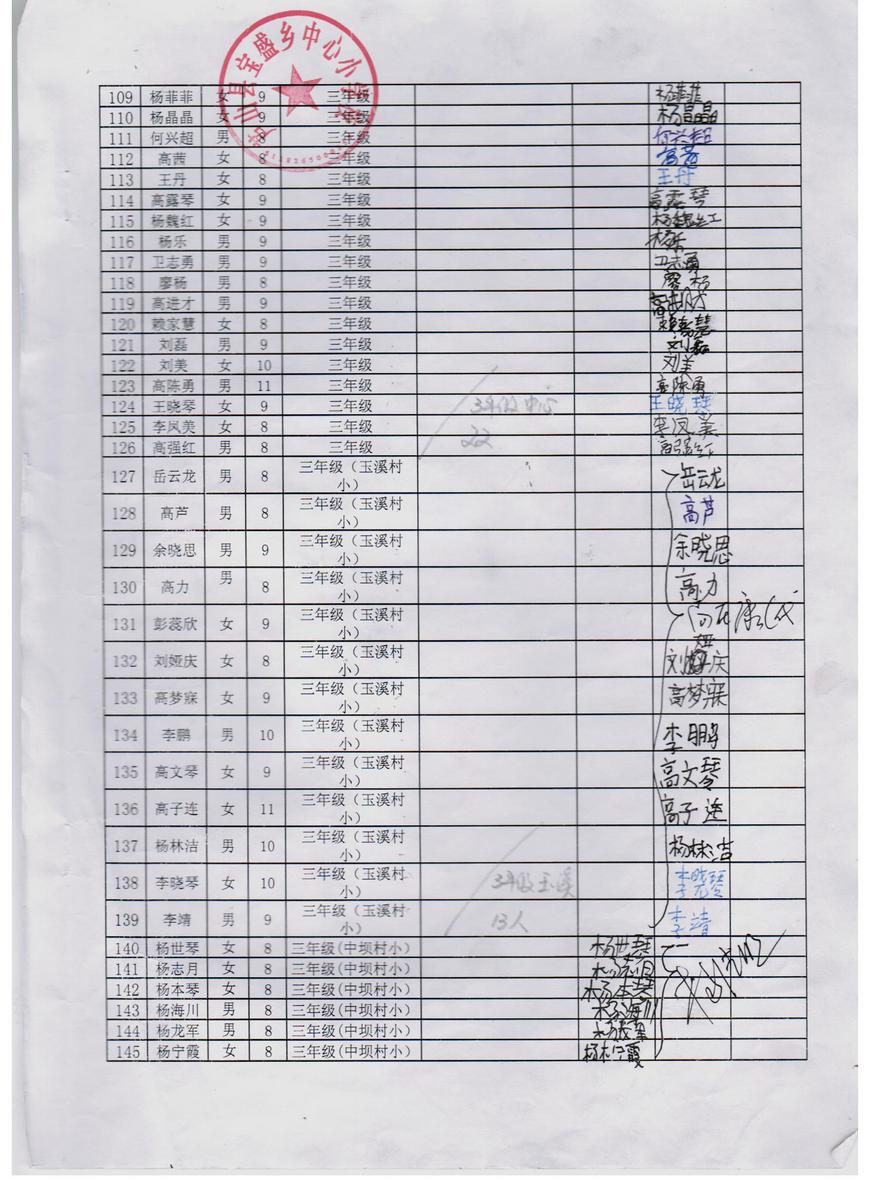 芦山县宝盛乡中心小学校
109 杨菲菲 女 9 三年级 杨菲菲
110 杨晶晶 女 9 三年级 杨晶晶
111 何兴超 男 8 三年级 何兴超
112 高茜 女 8 三年级 高茜
113 王丹 女 8 三年级 王丹
114 高露琴 女 9 三年级 高露琴
115 杨魏红 女 9 三年级 杨魏红
116 杨乐 男 9 三年级 杨乐
117 卫志勇 男 9 三年级 卫志勇
118 廖杨 男 8 三年级 廖杨
119 高进才 男 9 三年级 高进才
120 赖家慧 女 8 三年级 赖家慧
121 刘磊 男 9 三年级 刘磊
122 刘美 女 10 三年级 刘美
123 高陈勇 男 11 三年级 高陈勇
124 王晓琴 女 9 三年级 3年级中心 王晓琴
125 李凤美 女 8 三年级 22 李凤美
126 高强红 男 8 三年级 高强红
127 岳云龙 男 8 三年级（玉溪村小） 岳云龙
128 高芦 男 8 三年级（玉溪村小） 高芦
129 余晓思 男 9 三年级（玉溪村小） 余晓思
130 高力 男 8 三年级（玉溪村小） 高力
131 彭蕊欣 女 9 三年级（玉溪村小）
132 刘娅庆 女 8 三年级（玉溪村小） 刘娅庆
133 高梦寐 女 9 三年级（玉溪村小） 高梦寐
134 李鹏 男 10 三年级（玉溪村小） 李鹏
135 高文琴 女 9 三年级（玉溪村小） 高文琴
136 高子连 女 11 三年级（玉溪村小） 高子连
137 杨林洁 男 10 三年级（玉溪村小） 杨林洁
138 李晓琴 女 10 三年级（玉溪村小） 3年级玉溪 李晓琴
139 李靖 男 9 三年级（玉溪村小） 13人 李靖
140 杨世琴 女 8 三年级(中坝村小） 杨世琴
141 杨志月 女 8 三年级(中坝村小） 杨志月
142 杨本琴 女 8 三年级(中坝村小） 杨本琴
143 杨海川 男 8 三年级(中坝村小） 杨海川
144 杨龙军 男 8 三年级(中坝村小） 杨龙军
145 杨宁霞 女 8 三年级(中坝村小） 杨宁霞